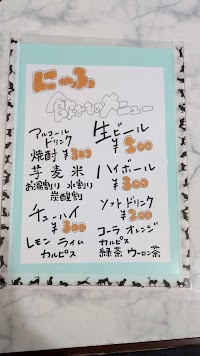 にゃふ
飲みものメニュー
アルコール
ドリンク
焼酎 ¥300
芋 麦 米
お湯割り 水割り
炭酸割
チューハイ
¥300
レモン ライム
カルピス
生ビール
¥500
ハイボール
¥300
ソフトドリンク
¥200
コーラ オレンジ
カルピス
緑茶 ウーロン茶